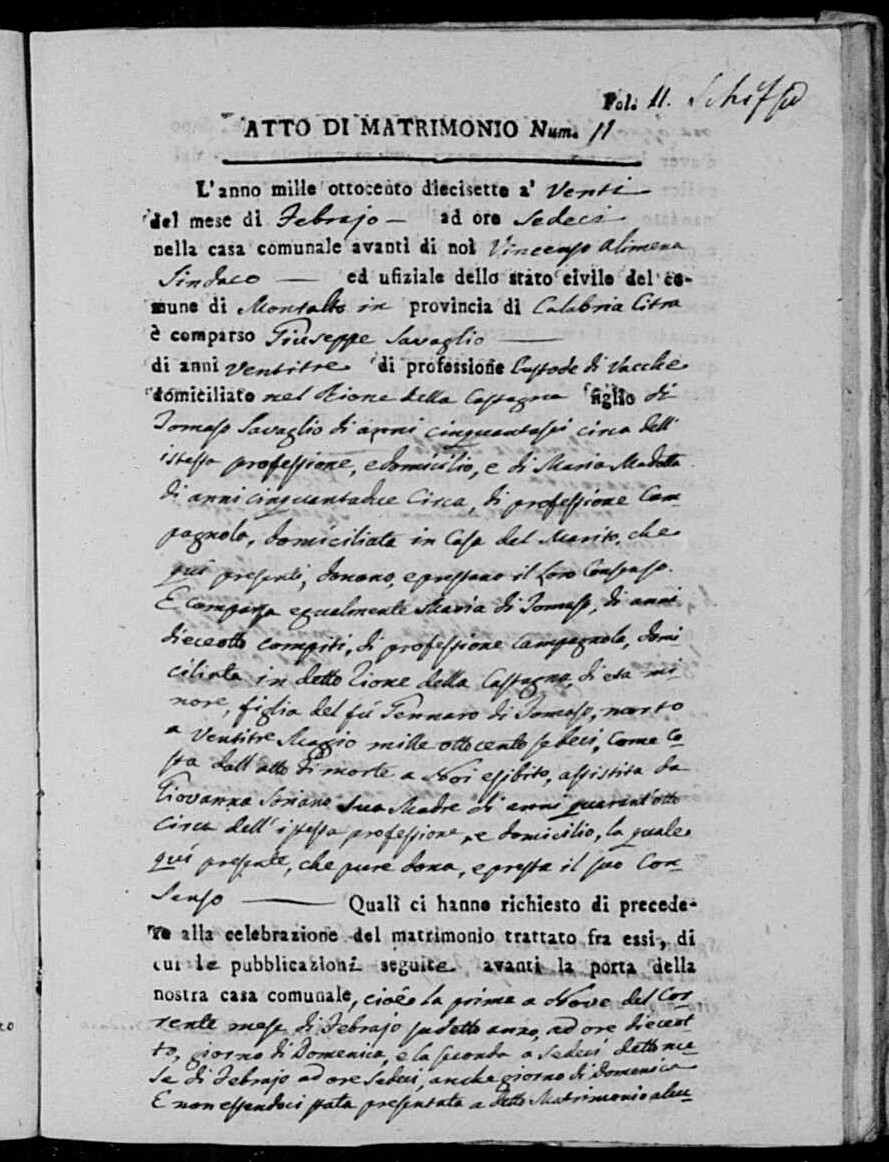 Fol. 11.
ATTO DI MATRIMONIO Num. 11
L'anno mille ottocento diecisette a' Venti
del mese di Febrajo — ad ore Sedeci
nella casa comunale avanti di noi Vincenzo Alimena
Sindaco — ed ufiziale dello stato civile del co-
mune di Montalto in provincia di Calabria Citra
è comparso Giuseppe Savaglio —
di anni Ventitre di professione Custode di Vacche
domiciliato nel Rione della Castagna figlio di
Tomaso Savaglio di anni cinquantasei circa dell'
istessa professione, e domicilio, e di Maria
di anni cinquantadue Circa, di professione Cam-
pagnola, domiciliata in Casa del Marito, che
quì presenti, donano, e prestano il Loro Consenso.
E comparsa egualmente Maria di Tomaso, di anni
dieceotto compiti, di professione Campagnola, domi
ciliata in detto Rione della Castagna, di età mi
nore, figlia del fù Gennaro di Tomaso, morto
a Ventitre Maggio mille ottocento sedeci, Come Co
sta dall'atto di morte a Noi esibito, assistita da
Giovanna Soriano sua Madre di anni quarant'otto
Circa dell'istessa professione, e domicilio, la quale
quì presente, che pure dona, e presta il suo Con
Senso — Quali ci hanno richiesto di precede-
re alla celebrazione del matrimonio trattato fra essi, di
cui le pubblicazioni seguite avanti la porta della
nostra casa comunale, cioè la prima a Nove del Cor-
rente mese di Febrajo sudetto anno, ad ore dieceot
to, giorno di Domenica, e la seconda a Sedeci detto me-
se di Febrajo ad ore Sedeci, anche giorno di Domenica
E non essendoci stata presentata a detto Matrimonio alcu-